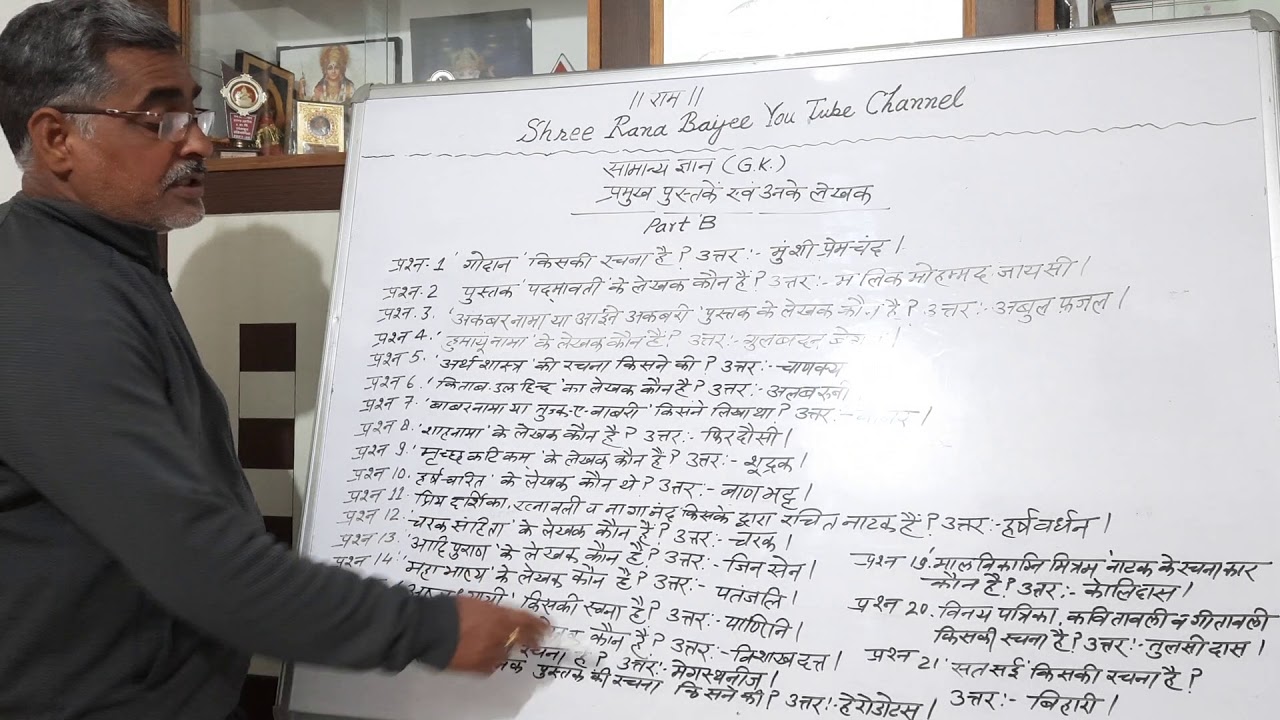 || राम ||
Shree Rana Baijee You Tube Channel
सामान्य ज्ञान (G.K.)
प्रमुख पुस्तकें एवं उनके लेखक
Part B
प्रश्न-1 'गोदान' किसकी रचना है? उत्तर:- मुंशी प्रेमचंद।
प्रश्न-2 पुस्तक 'पद्मावती' के लेखक कौन हैं? उत्तर:- मलिक मोहम्मद जायसी।
प्रश्न-3. 'अकबरनामा या आईने अकबरी' पुस्तक के लेखक कौन है? उत्तर:- अबुल फ़जल।
प्रश्न 4. 'हुमायूनामा' के लेखक कौन हैं? उत्तर:- गुलबदन
प्रश्न 5. 'अर्थशास्त्र' की रचना किसने की? उत्तर:- चाणक्य
प्रश्न 6. 'किताब उल हिन्द' का लेखक कौन है? उत्तर:- अलबरुनी
प्रश्न 7. 'बाबरनामा या तुज्क-ए-बाबरी' किसने लिखा था? उत्तर:-
प्रश्न 8. 'शाहनामा' के लेखक कौन है? उत्तर:- फिरदौसी।
प्रश्न 9. 'मृच्छकटिकम्' के लेखक कौन है? उत्तर:- शूद्रक।
प्रश्न 10. 'हर्ष-चरित' के लेखक कौन थे? उत्तर:- बाणभट्ट।
प्रश्न 11. प्रियदर्शिका, रत्नावली व नागानंद किसके द्वारा रचित नाटक हैं? उत्तर:- हर्षवर्धन।
प्रश्न 12. 'चरक संहिता' के लेखक कौन हैं? उत्तर:- चरक।
प्रश्न 13. 'आदि पुराण' के लेखक कौन हैं? उत्तर:- जिनसेन।
प्रश्न 14. 'महाभाष्य' के लेखक कौन हैं? उत्तर:- पतंजलि।
किसकी रचना है? उत्तर:- पाणिनि।
कौन हैं? उत्तर:- विशाखदत्त।
रचना है? उत्तर:- मेगस्थनीज।
पुस्तक की रचना किसने की? उत्तर:- हेरोडोटस।
प्रश्न 19. 'मालविकाग्निमित्रम्' नाटक के रचनाकार
कौन है? उत्तर:- कालिदास।
प्रश्न 20. विनय पत्रिका, कवितावली व गीतावली
किसकी रचना है? उत्तर:- तुलसीदास।
प्रश्न 21 'सतसई' किसकी रचना है?
उत्तर:- बिहारी।